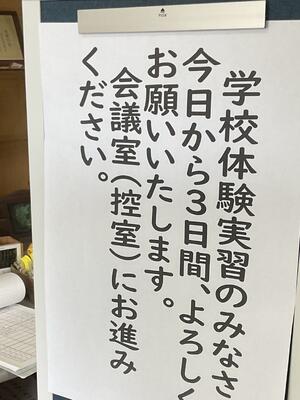 学校体験実習のみなさ
今日から3日間、よろしく
お願いいたします。
会議室(控室)にお進み
ください。